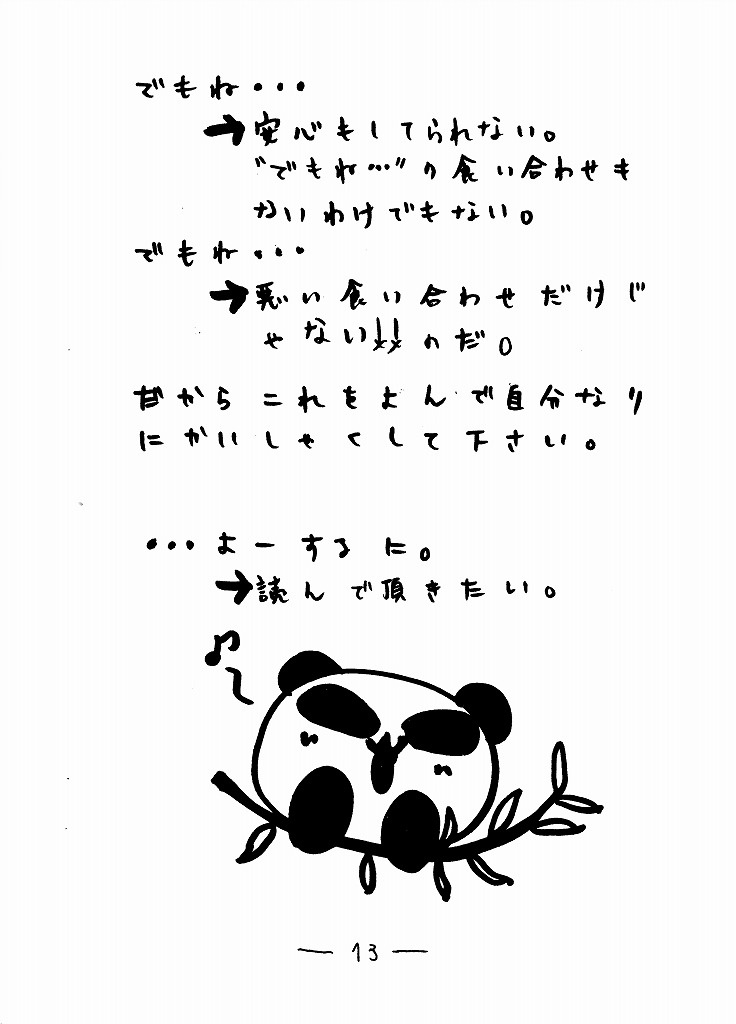 でもね・・・
➔安心もしてられない。
"でもね…"の食い合わせも
ないわけでもない。
でもね・・・
➔悪い食い合わせだけじ
ゃない!!のだ。
だからこれをよんで自分なり
にかいしゃくして下さい。
・・・よーするに。
➔読んで頂きたい。
♪
— 13 —